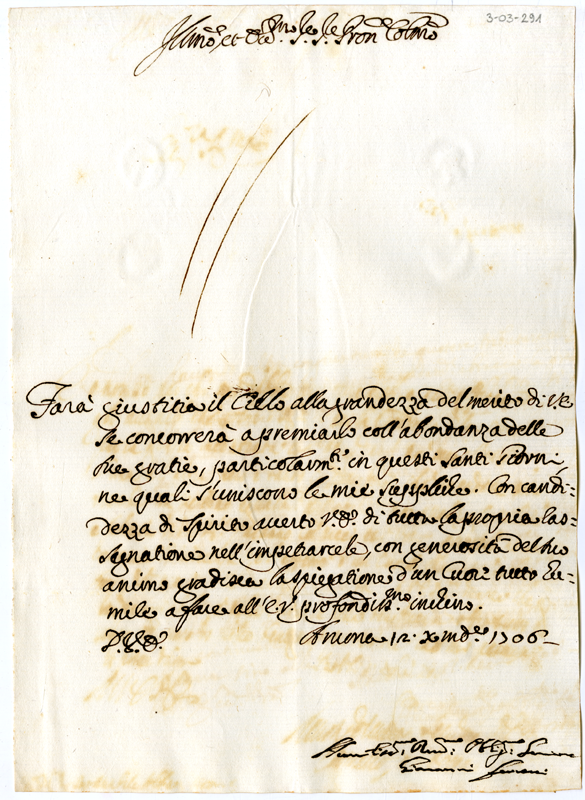 3-03-291
Illmo et Ecc.mo Sig.re Sig.re Pron Colmo
Farà giustitia il Cielo alla grandezza del merito di V.E
se concorrerà a premiarlo coll'abondanza delle
sue gratie, particolarm.te in questi santi giorni
ne quali s'uniscono le mie suppliche. Con candi-
dezza di spirito accerto V.E. di tutta la propria las-
segnatione nell'impetrarcele, con generosità del suo
animo gradisca la spiegatione d'un Cuor tutto hu-
mile a fare all'E.V. profondiss.mo inchino.
D.V.E. Ancona 12 Xmbre 1706